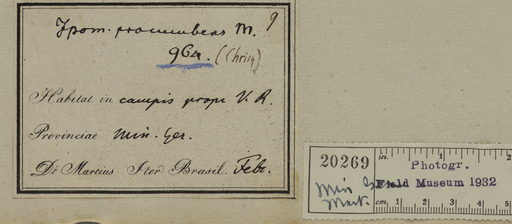 Ipom. procumbens M. 9
964. (Chrisy)
Habitat in campis prope V. R.
Provinciae Min. Ger.
Dr Martius Iter Brasil. Febr.
20269
in. 1 2
Photogr.
Field Museum 1932
Min G
Mart.
cm. 1 2 3 4 5